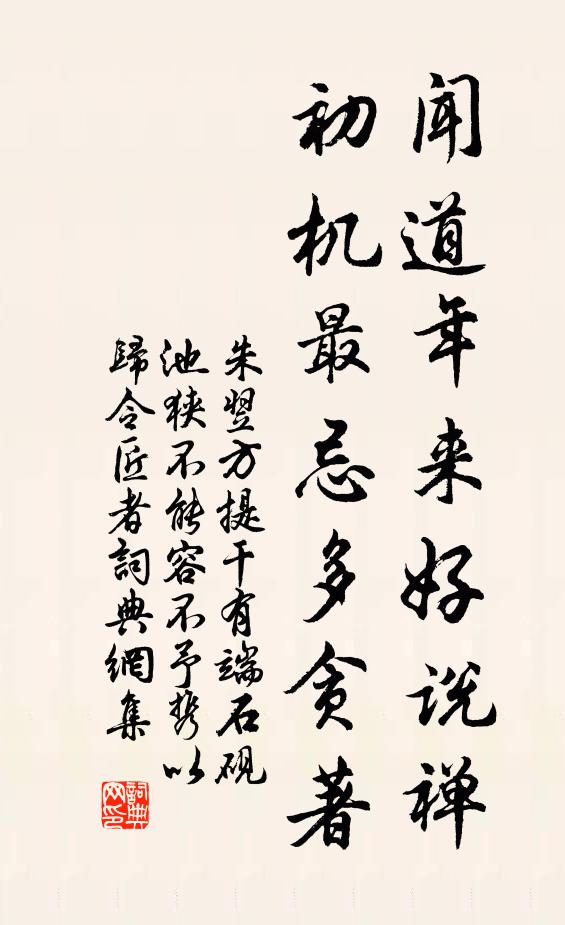 闻道年来好说禅
初机最忌多贪著
朱翌方提干有端石砚
池狭不能容不予携以
歸令匠者詞典網集
詞典网印